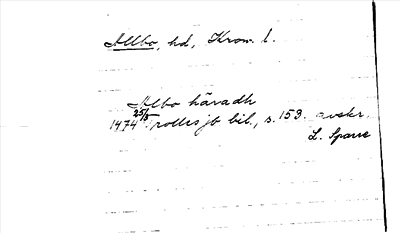 Allbo, hd, Kron. l.
Albo häradh
1474 25/5 rolls jb bil., s. 159. avskr.
L. Sparre